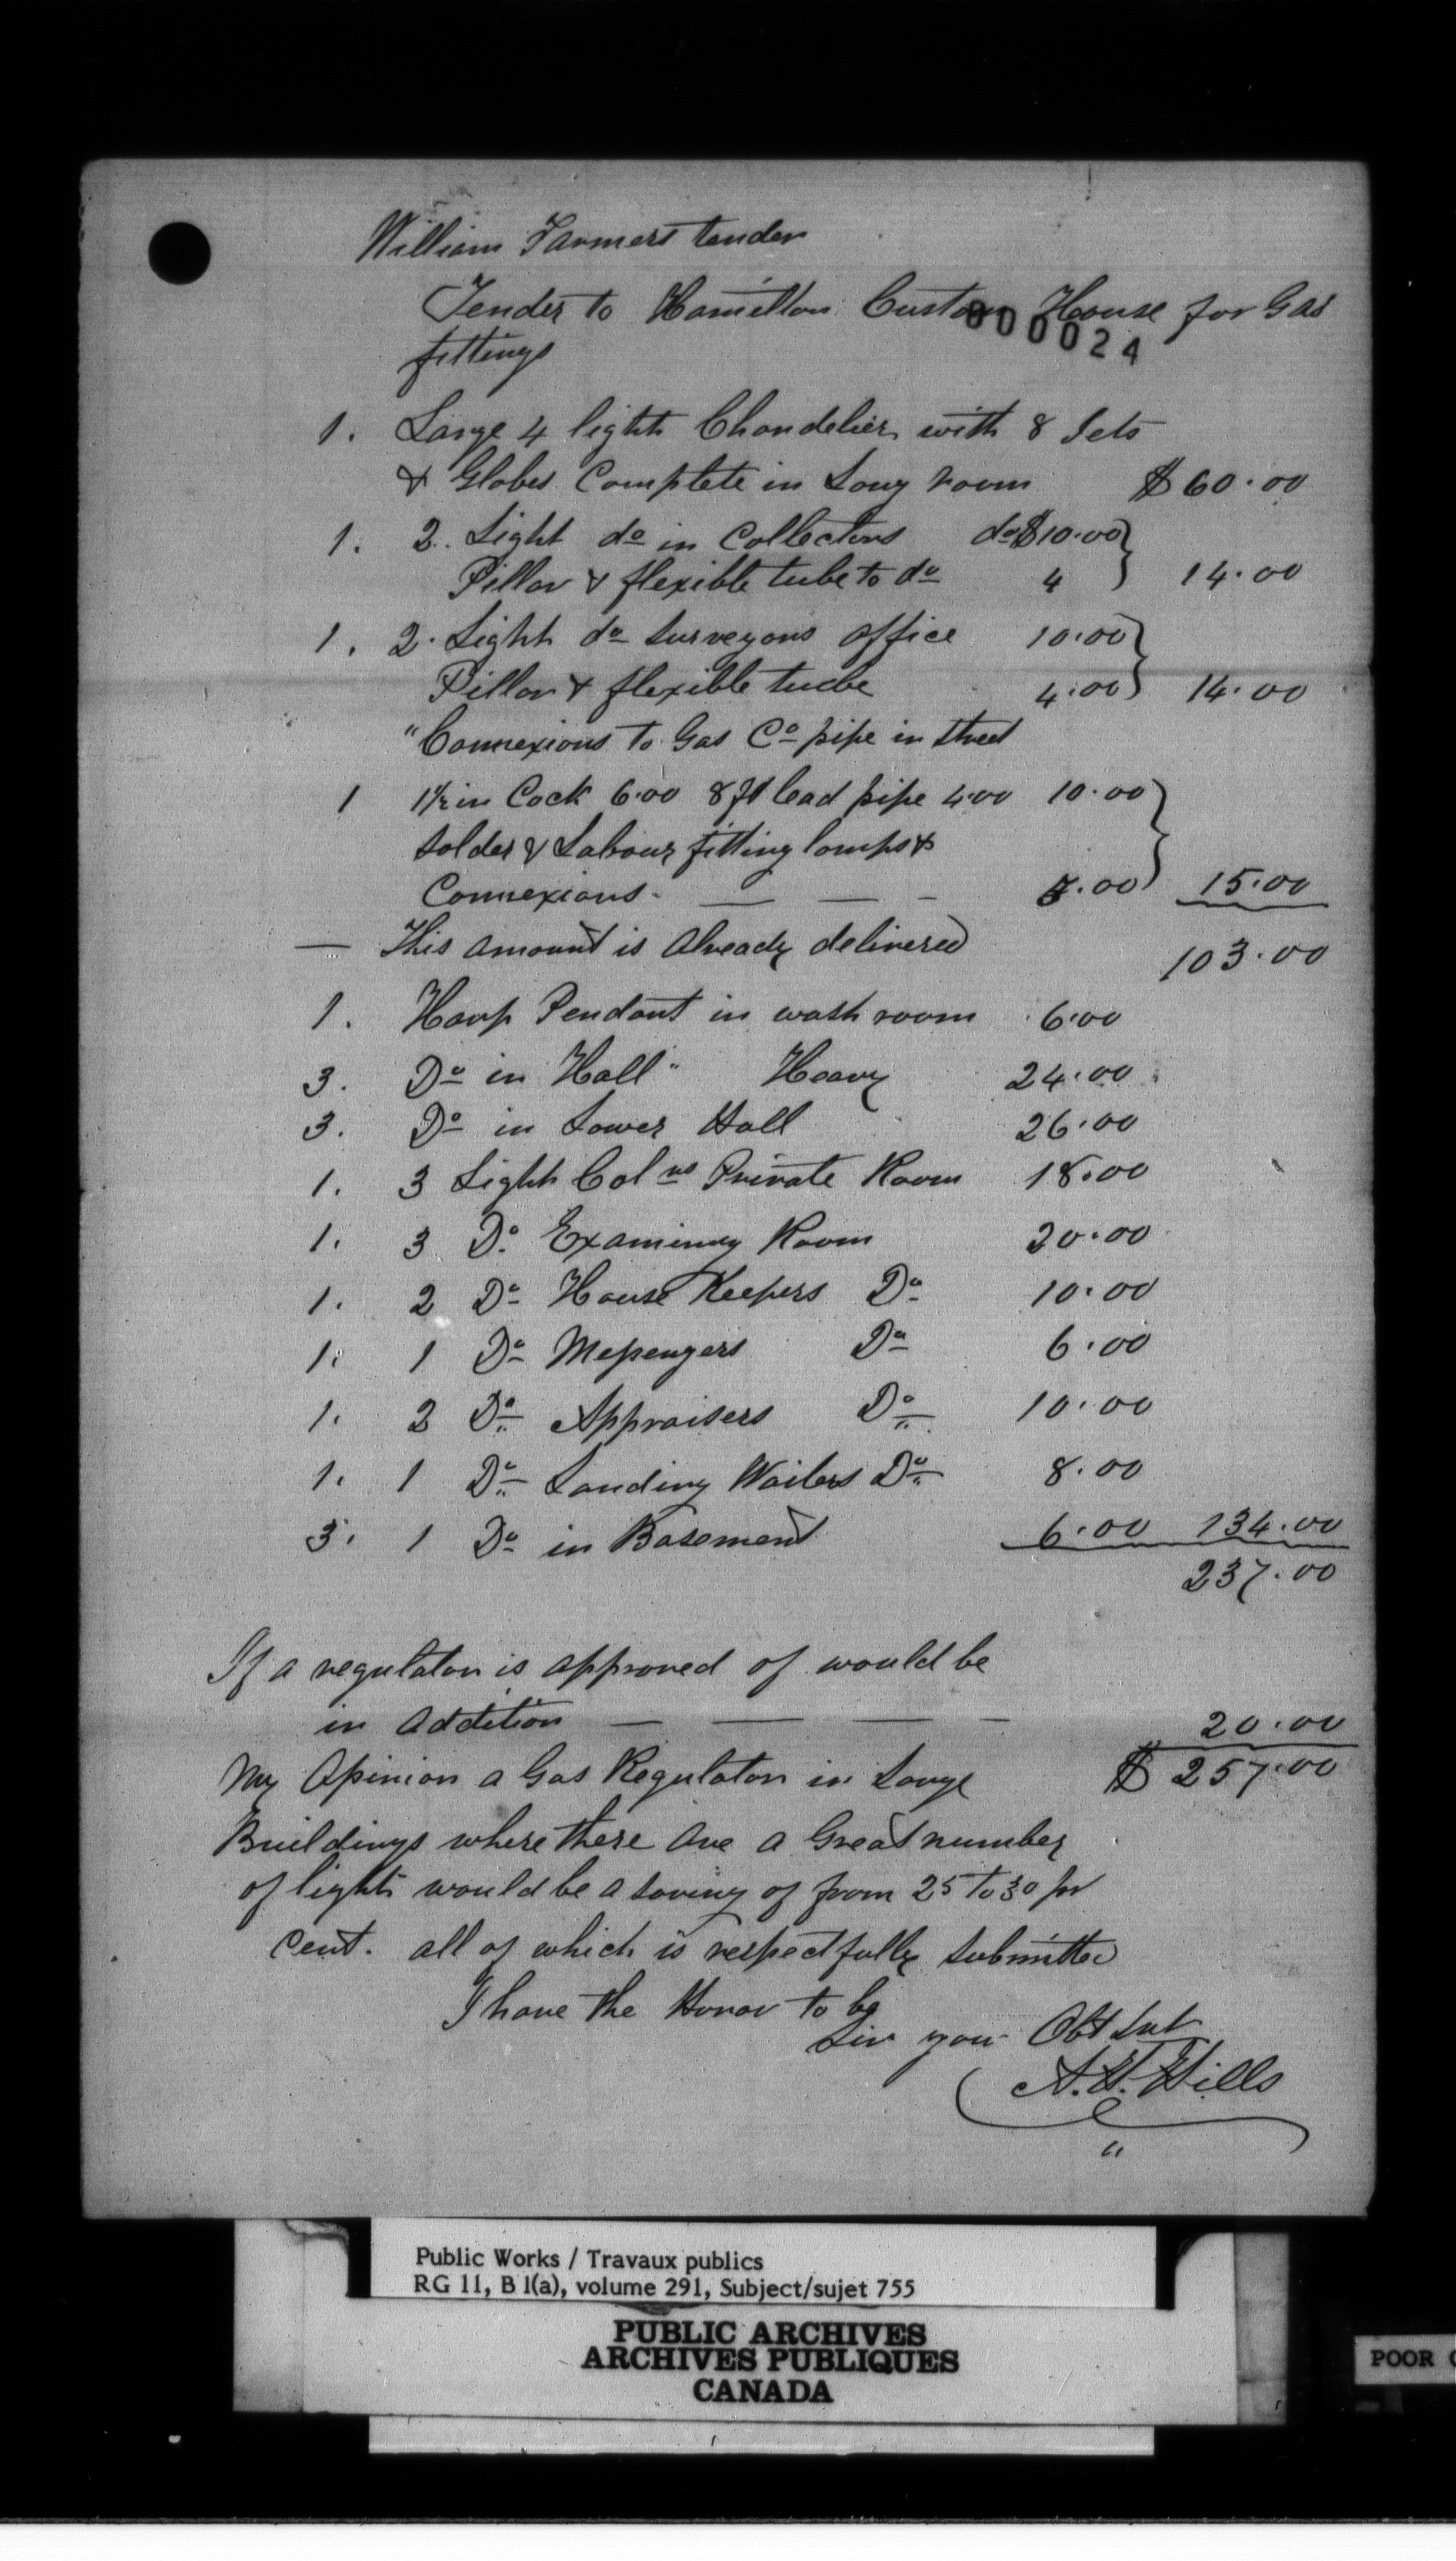 William Farmers tender
Tender to Hamilton Custom House for Gas
000024
fittings
1. Large 4 light Chandelier with 8 Jets
& Globes Complete in Long room $60.00
1. 2. Light do in Collectors do $10.00
Pillar & flexible tube to do 4 14.00
1. 2. Light do Surveyors office 10.00
Pillar & flexible tube 4.00 14.00
"Connexions to Gas Co pipe in Street
1 1½ in Cock 6.00 8 ft lead pipe 4.00 10.00
Solder & Labour fitting lamps &
Connexions - — — - 5.00 15.00
— This amount is already delivered 103.00
1. Harp Pendant in wash room 6.00
3. Do in Hall " Heavy 24.00
3. Do in Lower Hall 26.00
1. 3 Light Colrs Private Room 18.00
1. 3 Do Examining Room 20.00
1. 2 Do House Keepers Do 10.00
1. 1 Do Messengers Do 6.00
1. 2 Do Appraisers Do 10.00
1. 1 Do Landing Waiters Do 8.00
3. 1 Do in Basement 6.00 134.00
237.00
If a regulator is approved of would be
in addition — — — - 20.00
$257.00
My Opinion a Gas Regulator in Large
Buildings where there are a Great number
of lights would be a saving of from 25 to 30 pr
Cent. all of which is respectfully submitted
I have the Honor to be
Sir your Obt Svt
A. H. Hills
Public Works / Travaux publics
RG 11, B 1(a), volume 291, Subject/sujet 755
PUBLIC ARCHIVES
ARCHIVES PUBLIQUES
CANADA
POOR